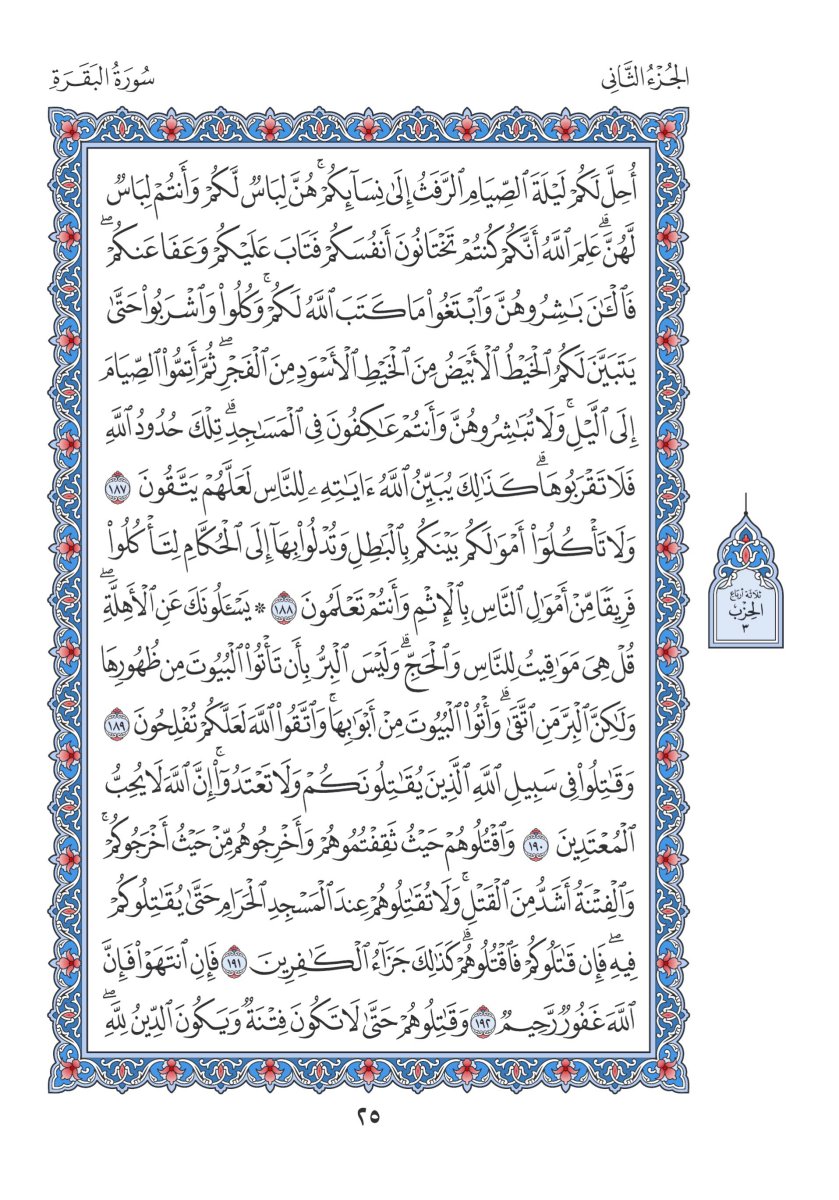 الجُزْءُ الثَّانِي
سُورَةُ البَقَرَةِ
أُحِلَّ لَكُمْ لَيْلَةَ ٱلصِّيَامِ ٱلرَّفَثُ إِلَىٰ نِسَآئِكُمْۚ هُنَّ لِبَاسٌ لَّكُمْ وَأَنتُمْ لِبَاسٌ
لَّهُنَّۗ عَلِمَ ٱللَّهُ أَنَّكُمْ كُنتُمْ تَخْتَانُونَ أَنفُسَكُمْ فَتَابَ عَلَيْكُمْ وَعَفَا عَنكُمْۖ
فَٱلْـَٰٔنَ بَٰشِرُوهُنَّ وَٱبْتَغُوا۟ مَا كَتَبَ ٱللَّهُ لَكُمْۚ وَكُلُوا۟ وَٱشْرَبُوا۟ حَتَّىٰ
يَتَبَيَّنَ لَكُمُ ٱلْخَيْطُ ٱلْأَبْيَضُ مِنَ ٱلْخَيْطِ ٱلْأَسْوَدِ مِنَ ٱلْفَجْرِۖ ثُمَّ أَتِمُّوا۟ ٱلصِّيَامَ
إِلَى ٱلَّيْلِۚ وَلَا تُبَٰشِرُوهُنَّ وَأَنتُمْ عَٰكِفُونَ فِى ٱلْمَسَٰجِدِۗ تِلْكَ حُدُودُ ٱللَّهِ
فَلَا تَقْرَبُوهَاۗ كَذَٰلِكَ يُبَيِّنُ ٱللَّهُ ءَايَٰتِهِۦ لِلنَّاسِ لَعَلَّهُمْ يَتَّقُونَ ١٨٧
وَلَا تَأْكُلُوٓا۟ أَمْوَٰلَكُم بَيْنَكُم بِٱلْبَٰطِلِ وَتُدْلُوا۟ بِهَآ إِلَى ٱلْحُكَّامِ لِتَأْكُلُوا۟
فَرِيقًا مِّنْ أَمْوَٰلِ ٱلنَّاسِ بِٱلْإِثْمِ وَأَنتُمْ تَعْلَمُونَ ١٨٨ * يَسْـَٔلُونَكَ عَنِ ٱلْأَهِلَّةِۖ
قُلْ هِىَ مَوَٰقِيتُ لِلنَّاسِ وَٱلْحَجِّۗ وَلَيْسَ ٱلْبِرُّ بِأَن تَأْتُوا۟ ٱلْبُيُوتَ مِن ظُهُورِهَا
وَلَٰكِنَّ ٱلْبِرَّ مَنِ ٱتَّقَىٰۗ وَأْتُوا۟ ٱلْبُيُوتَ مِنْ أَبْوَٰبِهَاۚ وَٱتَّقُوا۟ ٱللَّهَ لَعَلَّكُمْ تُفْلِحُونَ ١٨٩
وَقَٰتِلُوا۟ فِى سَبِيلِ ٱللَّهِ ٱلَّذِينَ يُقَٰتِلُونَكُمْ وَلَا تَعْتَدُوٓا۟ۚ إِنَّ ٱللَّهَ لَا يُحِبُّ
ٱلْمُعْتَدِينَ ١٩٠ وَٱقْتُلُوهُمْ حَيْثُ ثَقِفْتُمُوهُمْ وَأَخْرِجُوهُم مِّنْ حَيْثُ أَخْرَجُوكُمْۚ
وَٱلْفِتْنَةُ أَشَدُّ مِنَ ٱلْقَتْلِۚ وَلَا تُقَٰتِلُوهُمْ عِندَ ٱلْمَسْجِدِ ٱلْحَرَامِ حَتَّىٰ يُقَٰتِلُوكُمْ
فِيهِۖ فَإِن قَٰتَلُوكُمْ فَٱقْتُلُوهُمْۗ كَذَٰلِكَ جَزَآءُ ٱلْكَٰفِرِينَ ١٩١ فَإِنِ ٱنتَهَوْا۟ فَإِنَّ
ٱللَّهَ غَفُورٌ رَّحِيمٌ ١٩٢ وَقَٰتِلُوهُمْ حَتَّىٰ لَا تَكُونَ فِتْنَةٌ وَيَكُونَ ٱلدِّينُ لِلَّهِۖ
ثلاثة أرباع
الحزب
٣
٢٥